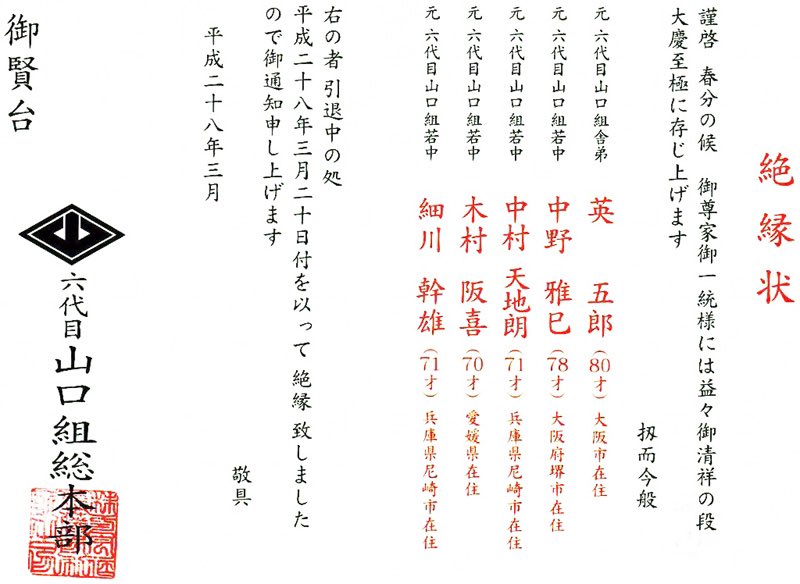 絶縁状
謹啓 春分の候 御尊家御一統様には益々御清祥の段
大慶至極に存じ上げます
扨而今般
元 六代目山口組舎弟 英 五郎(80才)大阪市在住
元 六代目山口組若中 中野 雅巳(78才)大阪府堺市在住
元 六代目山口組若中 中村 天地朗(71才)兵庫県尼崎市在住
元 六代目山口組若中 木村 阪喜(70才)愛媛県在住
元 六代目山口組若中 細川 幹雄(71才)兵庫県尼崎市在住
右の者 引退中の処
平成二十八年三月二十日付を以って 絶縁 致しました
ので御通知申し上げます
敬具
平成二十八年三月
六代目山口組総本部
御賢台